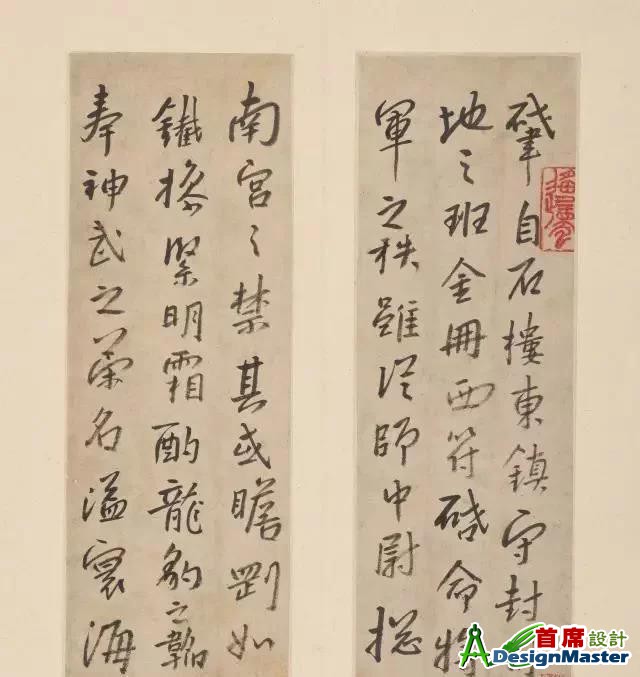 肇自石樓東鎮守封
地之班金冊西符啓命將
軍之秩雖從師中尉揔
南宮之禁其或膽剛如
鐵操緊明霜酌龍豹之韜
奉神武之策名溢寰海
首席設計
DesignMaster